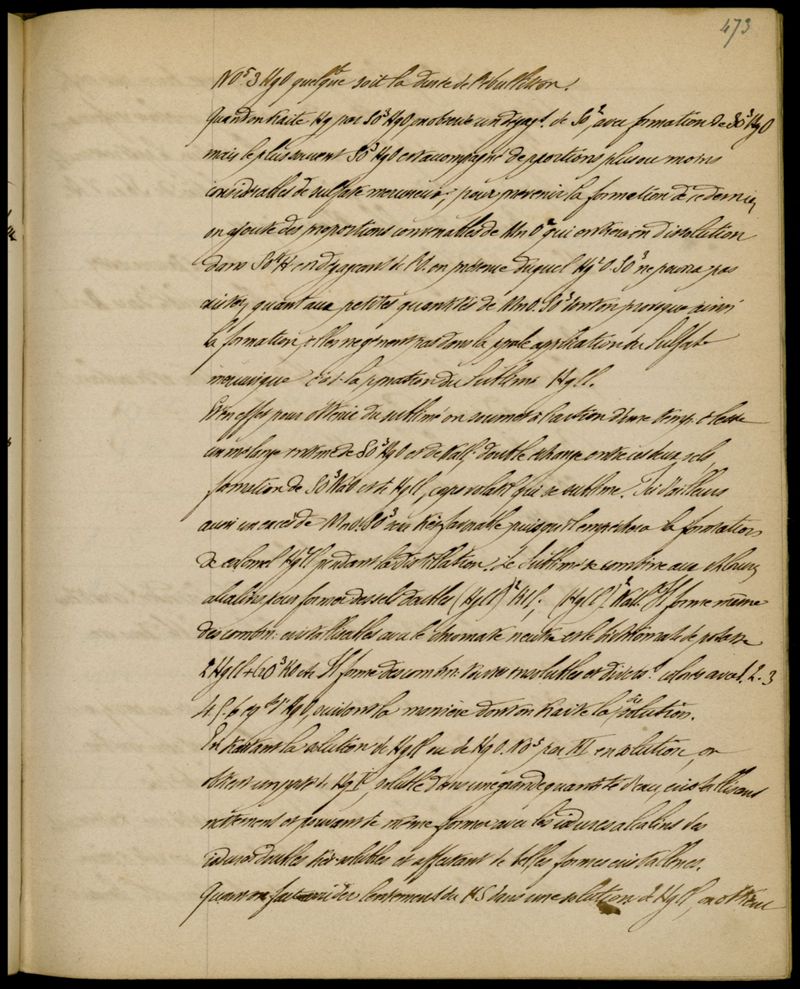 473
NO⁵ 3 HgO quelque soit la durée de l'ébullition.
Quand on traite Hg par SO³ HgO, on observe un dégagt. de SO², avec formation de SO³ HgO
mais le plus souvent SO³ HgO est accompagné de proportions plus ou moins
considérables de sulfate mercureux; pour prévenir la formation de ce dernier
on ajoute des proportions convenables de MnO² qui entrera en dissolution
dans SO³H en dégageant de l'O, en présence duquel Hg²O SO³ ne pourra pas
exister, quant aux petites quantités de MnO. SO³ dont on provoque ainsi
la formation, elles ne gênent pas dans la grande application du Sulfate
mercurique c'est la préparation du Sublimé HgCl.
En effet pour obtenir du sublimé on soumet à l'action d'une temp. élevée
un mélange intime de SO³ HgO et de NaCl: double échange entre ces deux sels
formation de SO³ NaO et de HgCl, corps volatil qui se sublime. Ici d'ailleurs
aussi un excès de MnO. SO³ sera très favorable puisqu'il empêchera la formation
de calomel Hg²Cl pendant la distillation. Le Sublimé se combine aux chlorures
alcalins pour former des sels doubles (HgCl)² KCl; (HgCl)² NaCl. Il forme même
des combin: cristallisables avec le chromate neutre et le bichromate de potasse
2 HgCl + CrO³ KO etc. Il forme des combin: insolubles et divers.t colorées avec 1. 2. 3
4. 5. 6 eq.ts d'HgO, suivant la manière dont on traite la solution.
En traitant la solution de HgCl ou de HgO. NO⁵ par KI en solution, on
obtient un ppté de HgI, soluble dans une grande quantité d'eau, cristallisant
nettement et pouvant de même former avec les iodures alcalins des
iodures doubles très solubles et affectant de belles formes cristallines.
Quand on fait arriver lentement du HS dans une solution de HgCl, on obtient